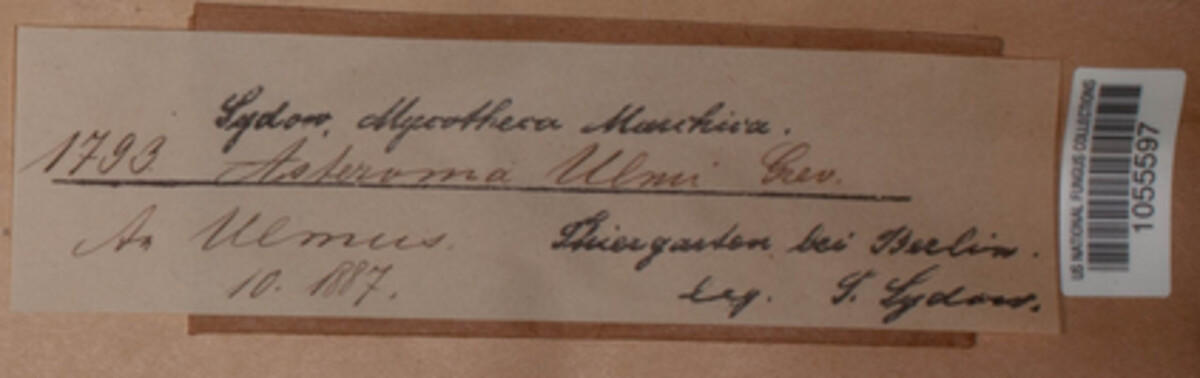 Sydow, Mycotheca Marchica.
1793 Asteroma Ulmi Grev.
An Ulmus.
Thiergarten bei Berlin.
10. 1887.
leg. P. Sydow.
US NATIONAL FUNGUS COLLECTIONS
1055597